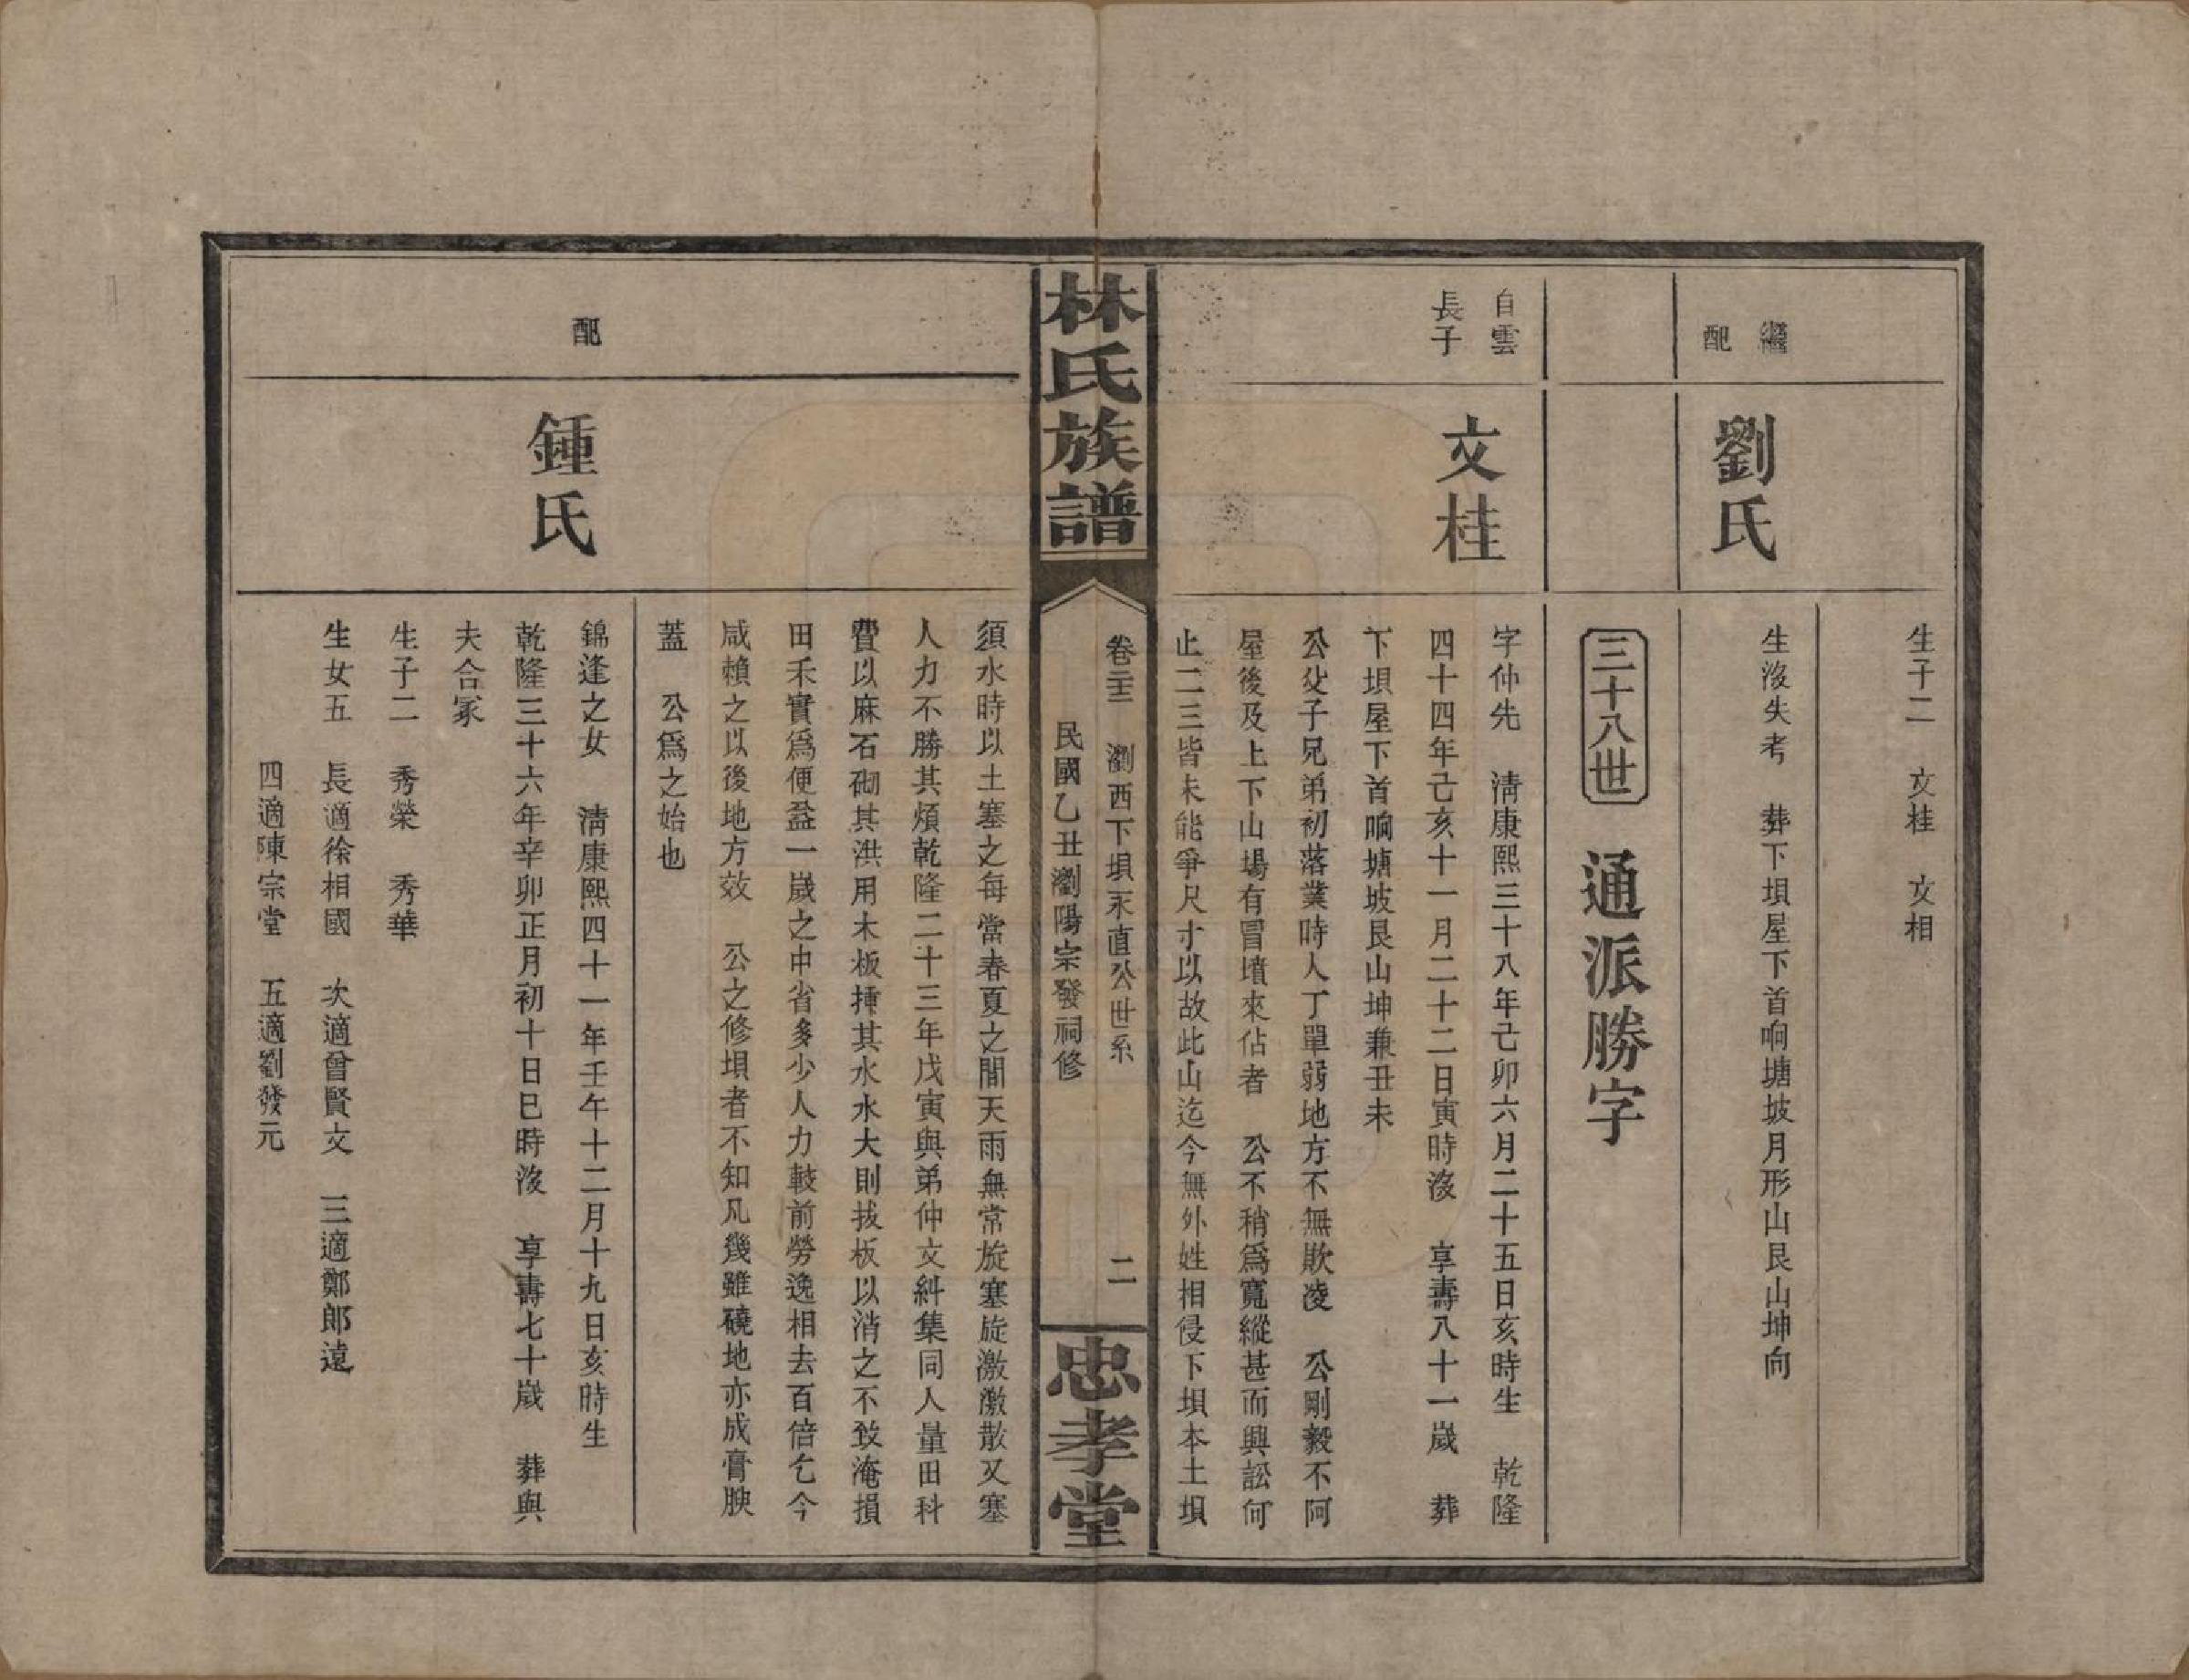 生子二　文桂　文相
繼配
劉氏
生沒失考　葬下埧屋下首响塘坡月形山艮山坤向
三十八世　通派勝字
自雲
長子
文桂
字仲先　淸康熙三十八年己卯六月二十五日亥時生　乾隆
四十四年己亥十一月二十二日寅時沒　享壽八十一歲　葬
下埧屋下首响塘坡艮山坤兼丑未
公父子兄弟初落業時人丁單弱地方不無欺凌　公剛毅不阿
屋後及上下山場有冒墳來佔者　公不稍爲寬縱甚而興訟何
止二三皆未能爭尺寸以故此山迄今無外姓相侵下埧本土埧
林氏族譜
卷二十三　瀏西下埧永直公世系　二
民國乙丑瀏陽宗發祠修
忠孝堂
須水時以土塞之每當春夏之間天雨無常旋塞旋激激散又塞
人力不勝其煩乾隆二十三年戊寅與弟仲文糾集同人量田科
費以麻石砌其洪用木板挿其水水大則拔板以消之不致淹損
田禾實爲便益一歲之中省多少人力較前勞逸相去百倍乞今
咸賴之以後地方效　公之修埧者不知凡幾雖磽地亦成膏腴
蓋　公爲之始也
配
鍾氏
錦逢之女　淸康熙四十一年壬午十二月十九日亥時生
乾隆三十六年辛卯正月初十日巳時沒　享壽七十歲　葬與
夫合冢
生子二　秀榮　秀華
生女五　長適徐相國　次適曾賢文　三適鄭郎遠
四適陳宗堂　五適劉發元